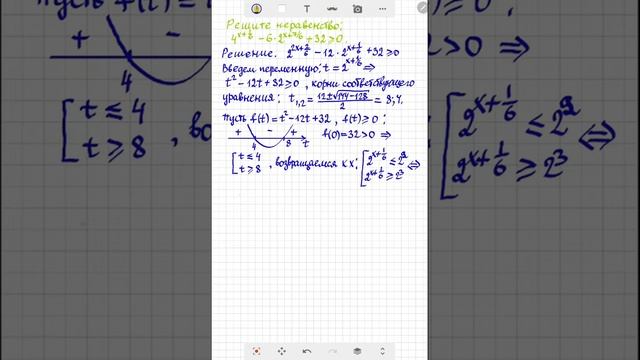 Решите неравенство:
4^{x+1/6} − 6·2^{x+7/6} + 32 ≥ 0.
Решение. 2^{2x+2/6} − 12·2^{x+1/6} + 32 ≥ 0
Введем переменную: t = 2^{x+1/6} ⇒
t² − 12t + 32 ≥ 0, корни соответствующего
уравнения: t_{1,2} = (12 ± √(144 − 128))/2 = 8; 4.
Пусть f(t) = t² − 12t + 32, f(t) ≥ 0;
+ − + 4 8 t f(0) = 32 > 0 ⇒
[ t ≤ 4
t ≥ 8 , возвращаемся к x: [ 2^{x+1/6} ≤ 2²
2^{x+1/6} ≥ 2³ ⇔